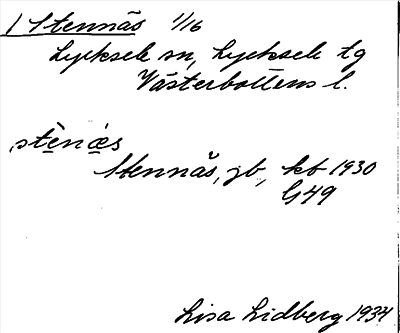 1 Stennäs 1/16
Lycksele sn, Lycksele tg
Västerbottens l.
stènæs
Stennäs, gb, kb 1930
G49
Lisa Lidberg 1934